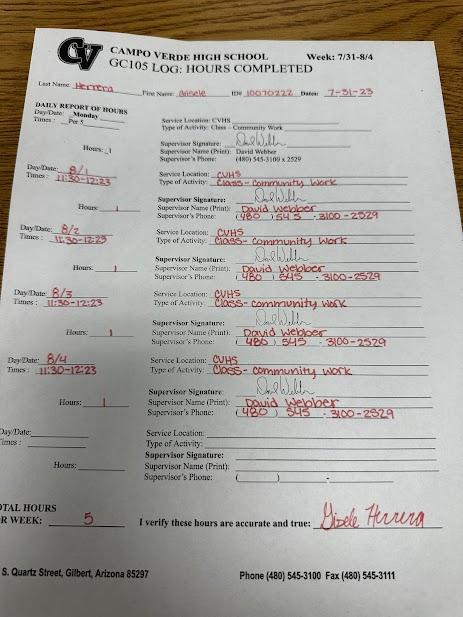 CV
CAMPO VERDE HIGH SCHOOL Week: 7/31-8/4
GC105 LOG: HOURS COMPLETED
Last Name: Herrera First Name: Gisele ID# 10070222 Dates: 7-31-23
DAILY REPORT OF HOURS
Day/Date: Monday
Times : Per 5
Service Location: CVHS
Type of Activity: Class – Community Work
Supervisor Signature: David Webber
Hours: 1 Supervisor Name (Print): David Webber
Supervisor's Phone: (480) 545-3100 x 2529
Day/Date: 8/1 Service Location: CVHS
Times : 11:30-12:23 Type of Activity: Class- community work
Supervisor Signature: David Webber
Hours: 1 Supervisor Name (Print): David Webber
Supervisor's Phone: (480) 545 - 3100-2529
Day/Date: 8/2 Service Location: CVHS
Times : 11:30-12:23 Type of Activity: Class- community work
Supervisor Signature: David Webber
Hours: 1 Supervisor Name (Print): David Webber
Supervisor's Phone: (480) 545 - 3100-2529
Day/Date: 8/3 Service Location: CVHS
Times : 11:30-12:23 Type of Activity: Class- community work
Supervisor Signature: David Webber
Hours: 1 Supervisor Name (Print): David Webber
Supervisor's Phone: (480) 545 - 3100-2529
Day/Date: 8/4 Service Location: CVHS
Times : 11:30-12:23 Type of Activity: Class- community work
Supervisor Signature: David Webber
Hours: 1 Supervisor Name (Print): David Webber
Supervisor's Phone: (480) 545 - 3100-2529
Day/Date: Service Location:
Times : Type of Activity:
Supervisor Signature:
Hours: Supervisor Name (Print):
Supervisor's Phone: ( ) -
OTAL HOURS
R WEEK: 5 I verify these hours are accurate and true: Gisele Herrera
S. Quartz Street, Gilbert, Arizona 85297 Phone (480) 545-3100 Fax (480) 545-3111